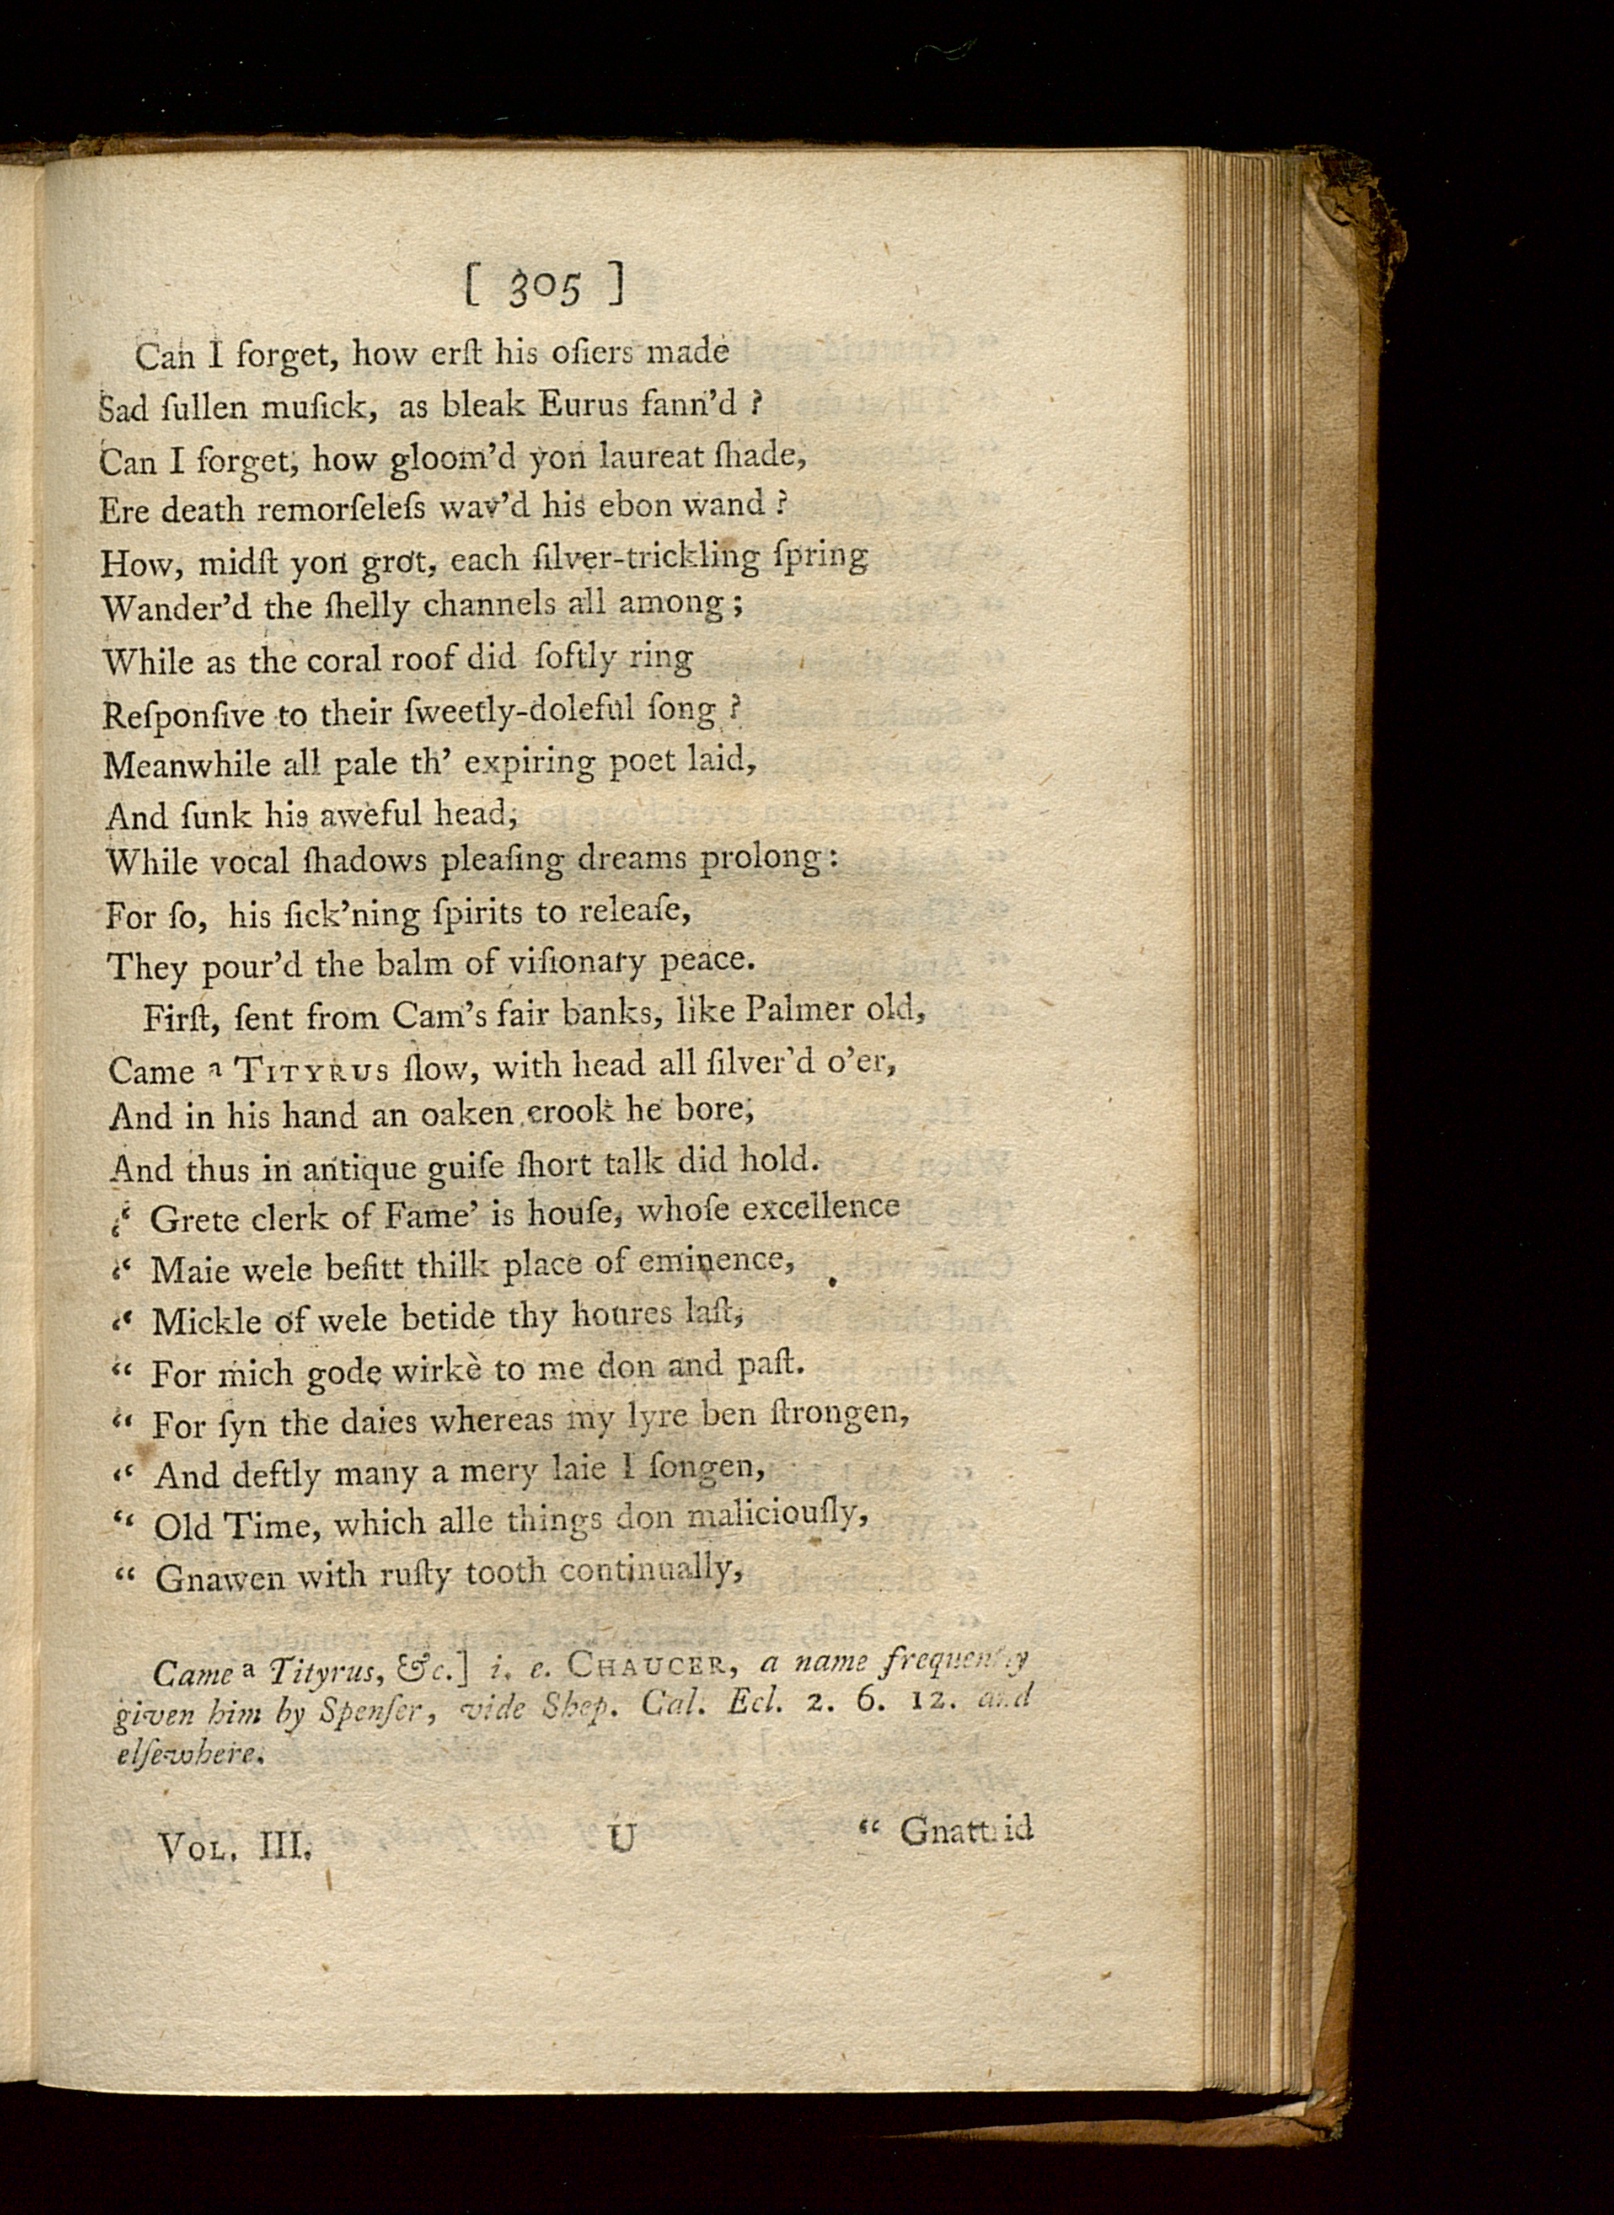 [ 305 ]
Can I forget, how erſt his oſiers made
Sad ſullen muſick, as bleak Eurus fann'd ?
Can I forget, how gloom'd yon laureat ſhade,
Ere death remorſeleſs wav'd his ebon wand ?
How, midſt yon grot, each ſilver-trickling ſpring
Wander'd the ſhelly channels all among ;
While as the coral roof did ſoftly ring
Reſponſive to their ſweetly-doleful ſong ?
Meanwhile all pale th' expiring poet laid,
And ſunk his aweful head,
While vocal ſhadows pleaſing dreams prolong :
For ſo, his ſick'ning ſpirits to releaſe,
They pour'd the balm of viſionary peace.
Firſt, ſent from Cam's fair banks, like Palmer old,
Came a TITYRUS ſlow, with head all ſilver'd o'er,
And in his hand an oaken crook he bore,
And thus in antique guiſe ſhort talk did hold.
“ Grete clerk of Fame' is houſe, whoſe excellence
“ Maie wele befitt thilk place of eminence,
“ Mickle of wele betide thy houres laſt,
“ For mich gode wirkè to me don and paſt.
“ For ſyn the daies whereas my lyre ben ſtrongen,
“ And deftly many a mery laie I ſongen,
“ Old Time, which alle things don maliciouſly,
“ Gnawen with ruſty tooth continually,
Came a Tityrus, &c.] i. e. CHAUCER, a name frequently
given him by Spenſer, vide Shep. Cal. Ecl. 2. 6. 12. and
elſewhere.
VOL. III. U “ Gnattrid